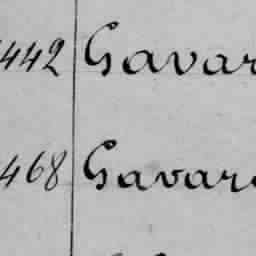 442 Gavar
468 Gavar